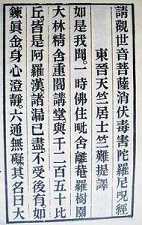 請觀世音菩薩消伏毒害陀羅尼呪經
東晉天竺居士竺難提譯
如是我聞一時佛住毗舍離菴羅樹園
大林精舍重閣講堂與千二百五十比
丘皆是阿羅漢諸漏已盡不受後有如
鍊眞金身心澄靜六通無礙其名曰大